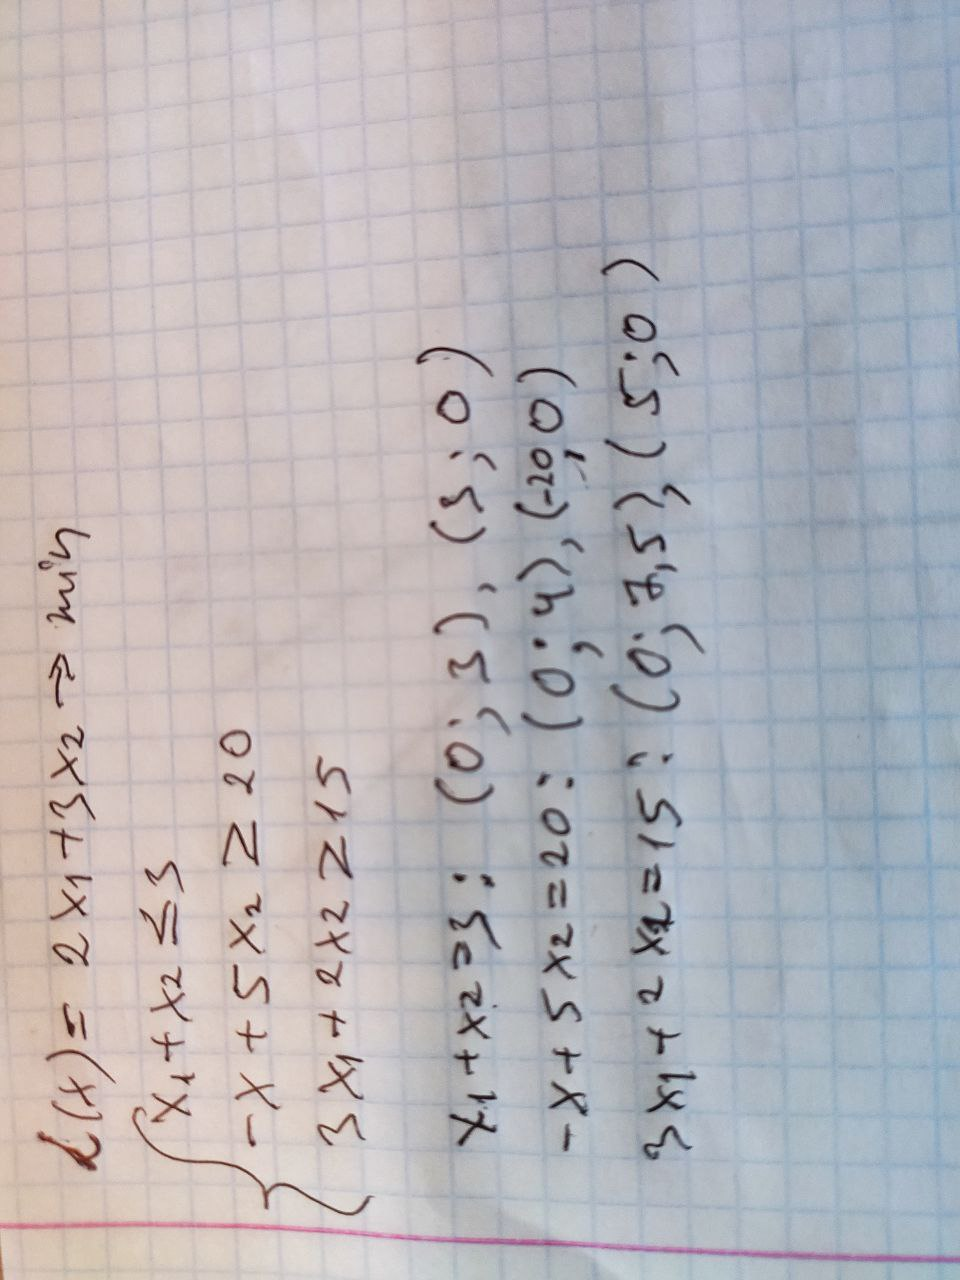 L(x) = 2x1 + 3x2 → min
x1 + x2 ≤ 3
-x + 5x2 ≥ 20
3x1 + 2x2 ≥ 15
x1 + x2 = 3 : (0; 3), (3; 0)
-x + 5x2 = 20 : (0; 4), (-20; 0)
3x1 + 2x2 = 15 : (0; 7,5), (5; 0)